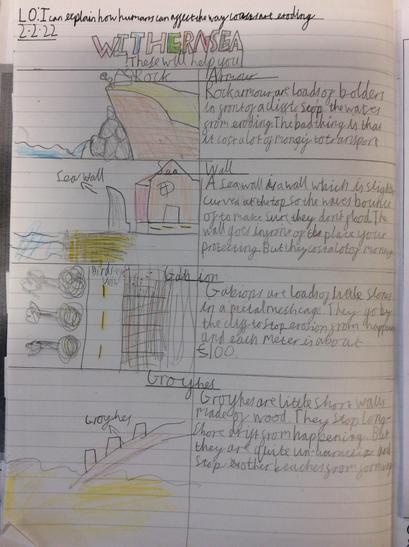 LO:I can explain how humans can affect the way coasts are eroding
2.2.22
WITHERNSEA
These will help you!
Rock Armour
Rock armour are loads of bolders
in front of a clif to stop the water
from eroding. The bad thing is that
it cost alot of money to transport
Sea Wall
Sea wall
A Seawall is a wall which is slightly
curved at the top so the waves bounce
of to make sure they dont flood. The
wall goes infront of the place your
protecting. But they cost alot of money
Gabion
Birdseye
view
Gabions are loads of little stones
in a metal mesh cage. They go by
the cliff to stop erosion from happening
and each meter is about
£100.
Groyhes
Groyhes
Groyhes are little short walls
made of wood. They stop Long-
shore drift from happening. But
they are quite un-attractive and
stop other beaches from forming